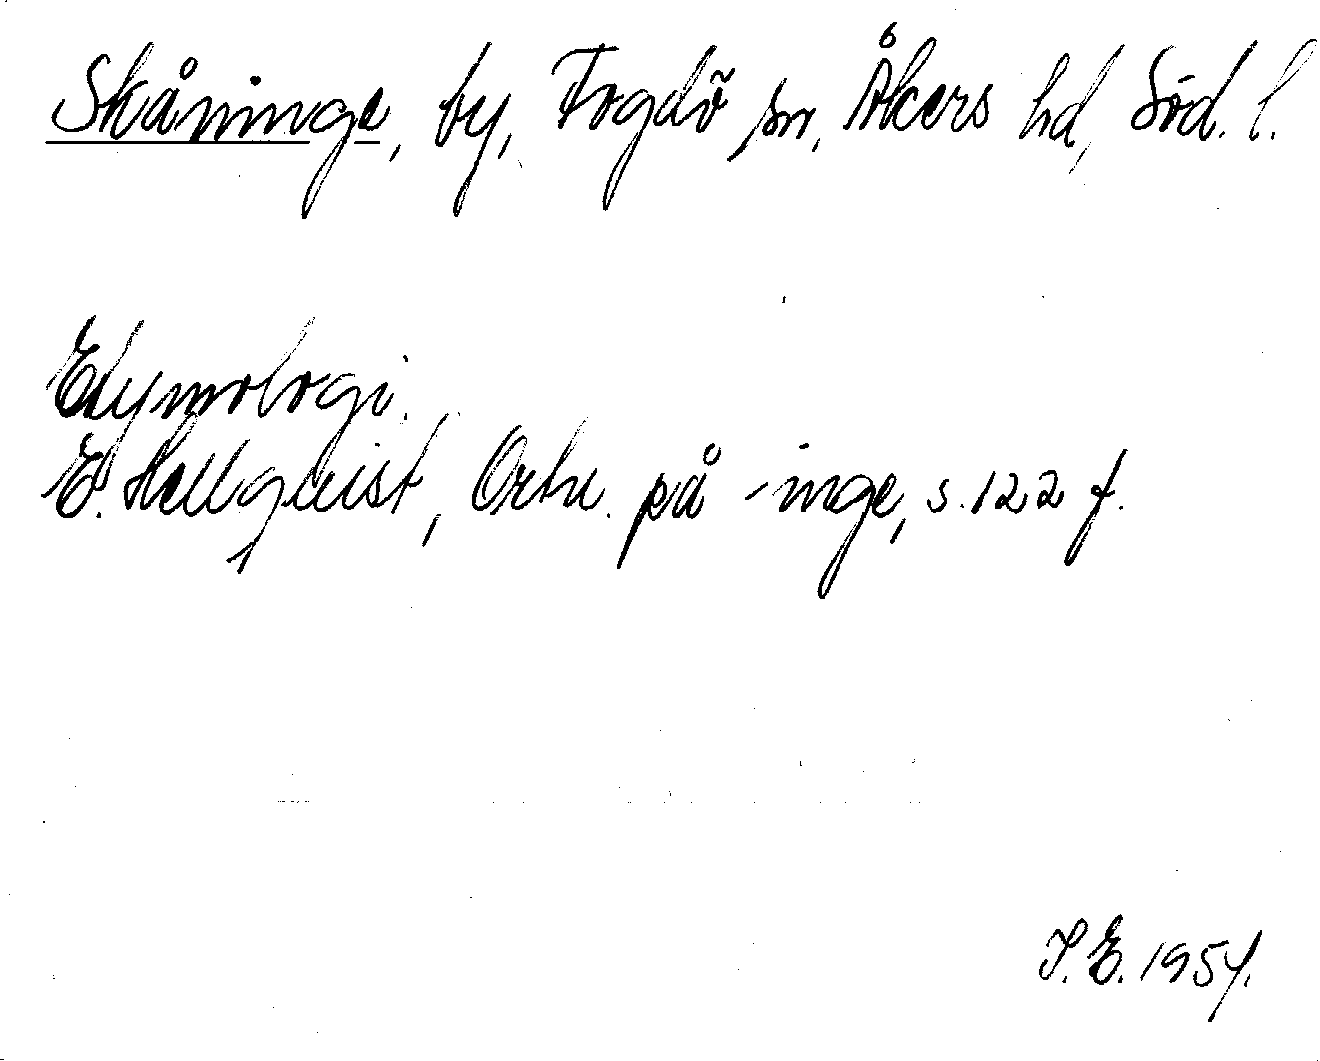 Skåninge, by, Fogdö sn, Åkers hd, Söd. l.
Etymologi.
E. Hellquist, Ortn. på -inge, s. 122 f.
S. E. 1954.